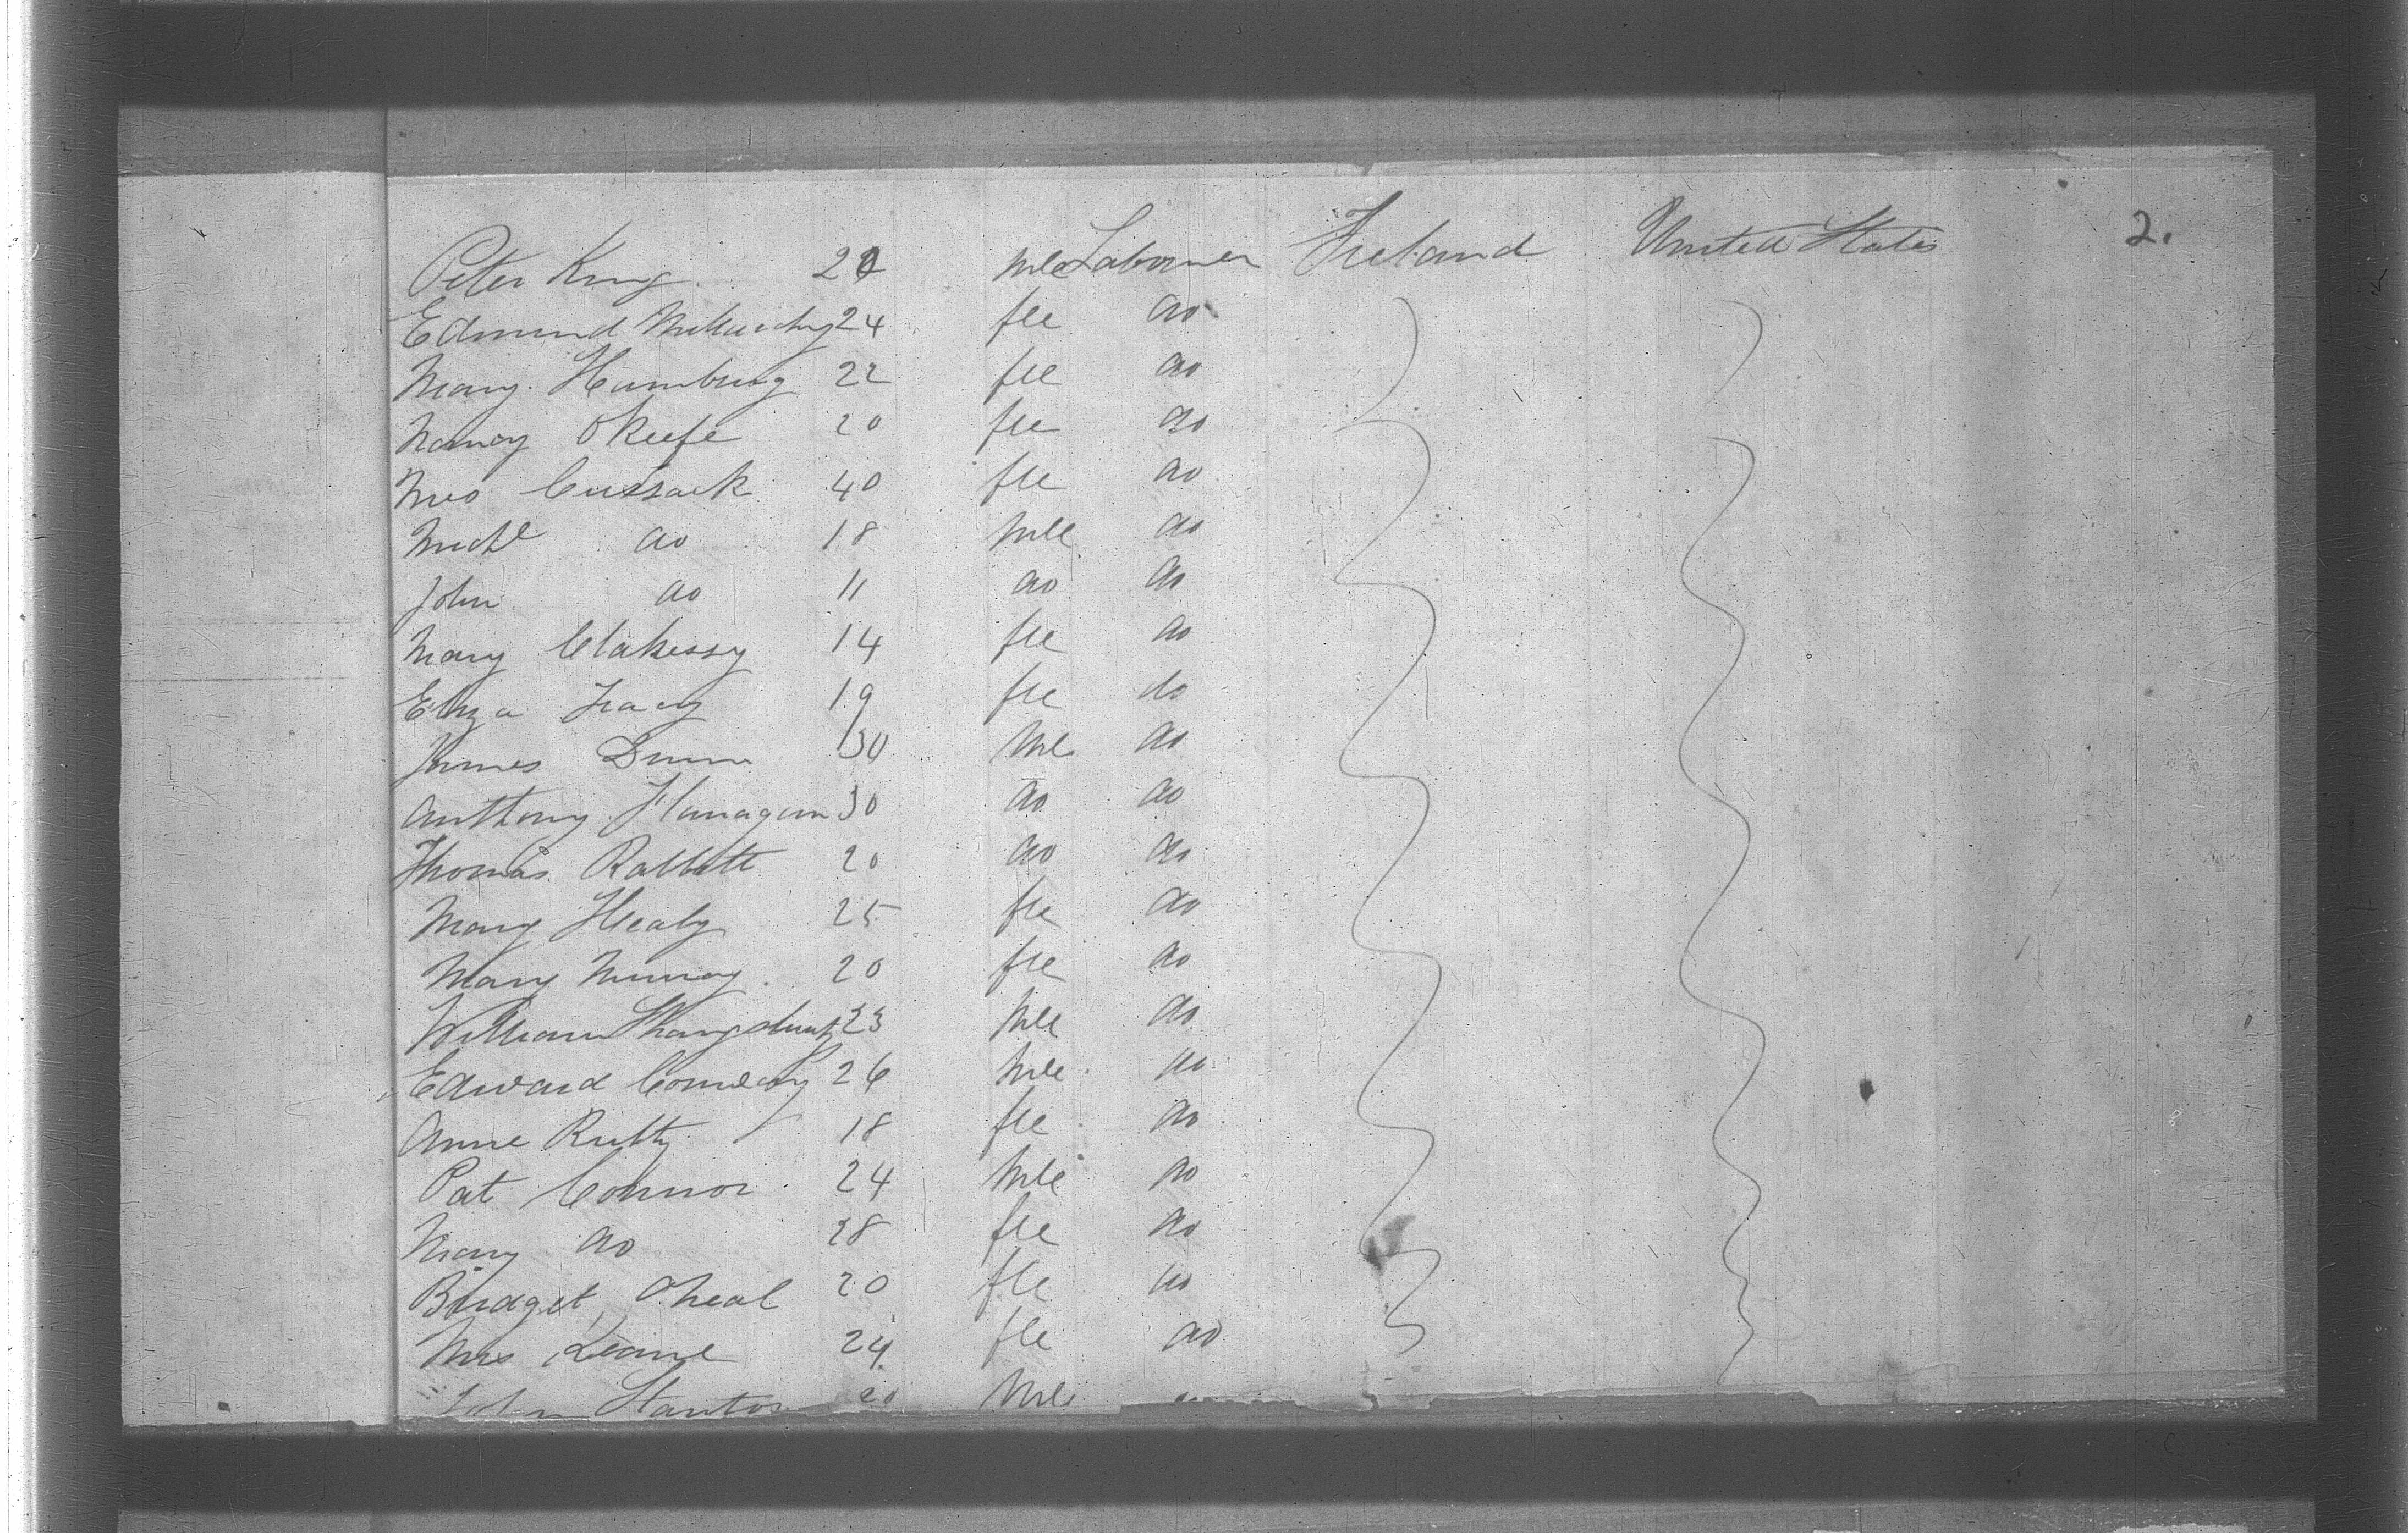 Peter King 20 mle Laborner Ireland United States 2.
Edmund 24 fle do
Mary Hamburg 22 fle do
Nancy OKeefe 20 fle do
Mrs Cussack 40 fle do
Michl do 18 mle do
John do 11 do do
Mary Clakessy 14 fle do
Eliza Tracy 19 fle do
James Dunn 30 mle do
Anthony Flanagan 30 do do
Thomas Rabbitt 20 do do
Mary Healy 25 fle do
Mary Murray 20 fle do
William 23 mle do
Edward 26 mle do
Anne Rutty 18 fle do
Pat Connor 24 mle do
Mary do 28 fle do
Bridget ONeal 20 fle do
Mrs Keane 24 fle do
John Stanton 20 mle